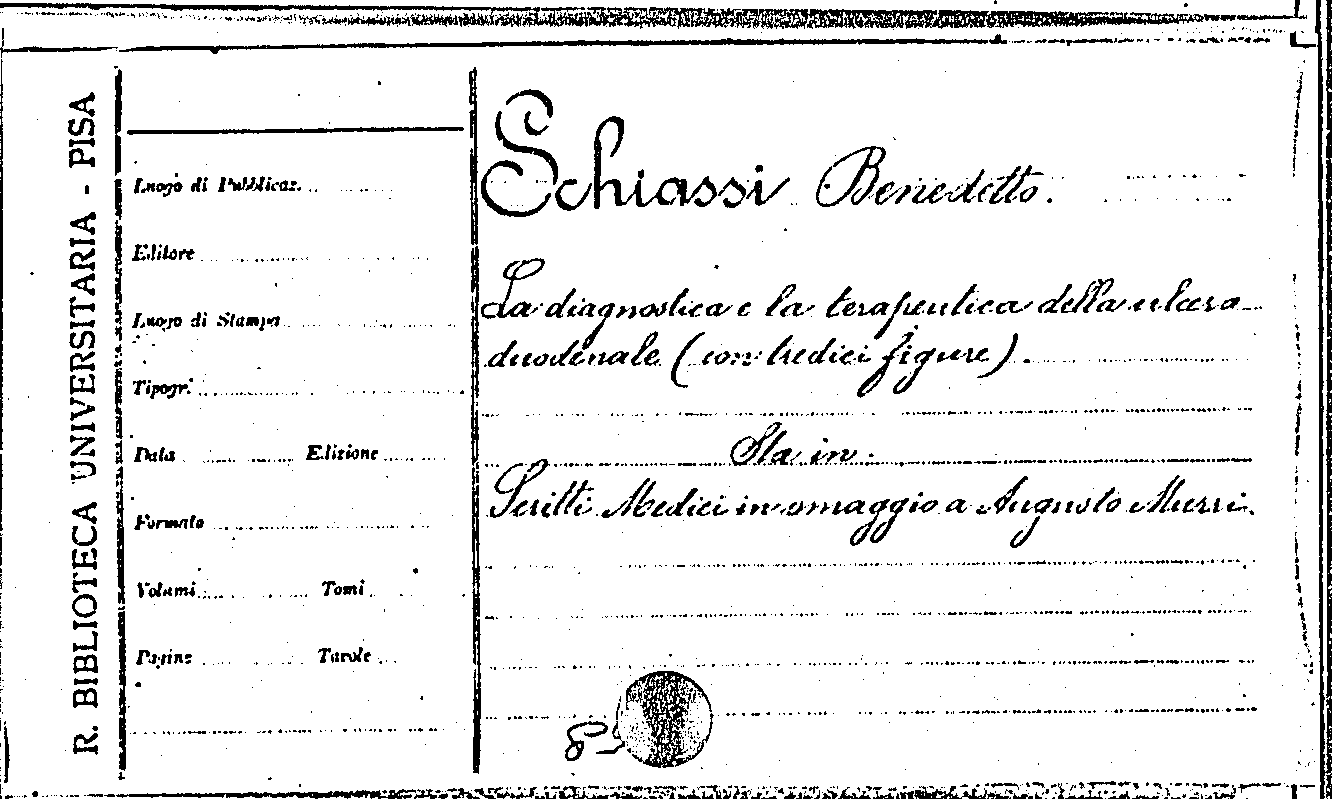 R. BIBLIOTECA UNIVERSITARIA - PISA
Luogo di Pubblicaz.
Editore
Luogo di Stampa
Tipogr.
Data Edizione
Formato
Volumi Tomi
Pagine Tavole
Schiassi Benedetto.
La diagnostica e la terapeutica della ulcera
duodenale (con tredici figure).
Sta in.
Scritti Medici in omaggio a Augusto Murri.